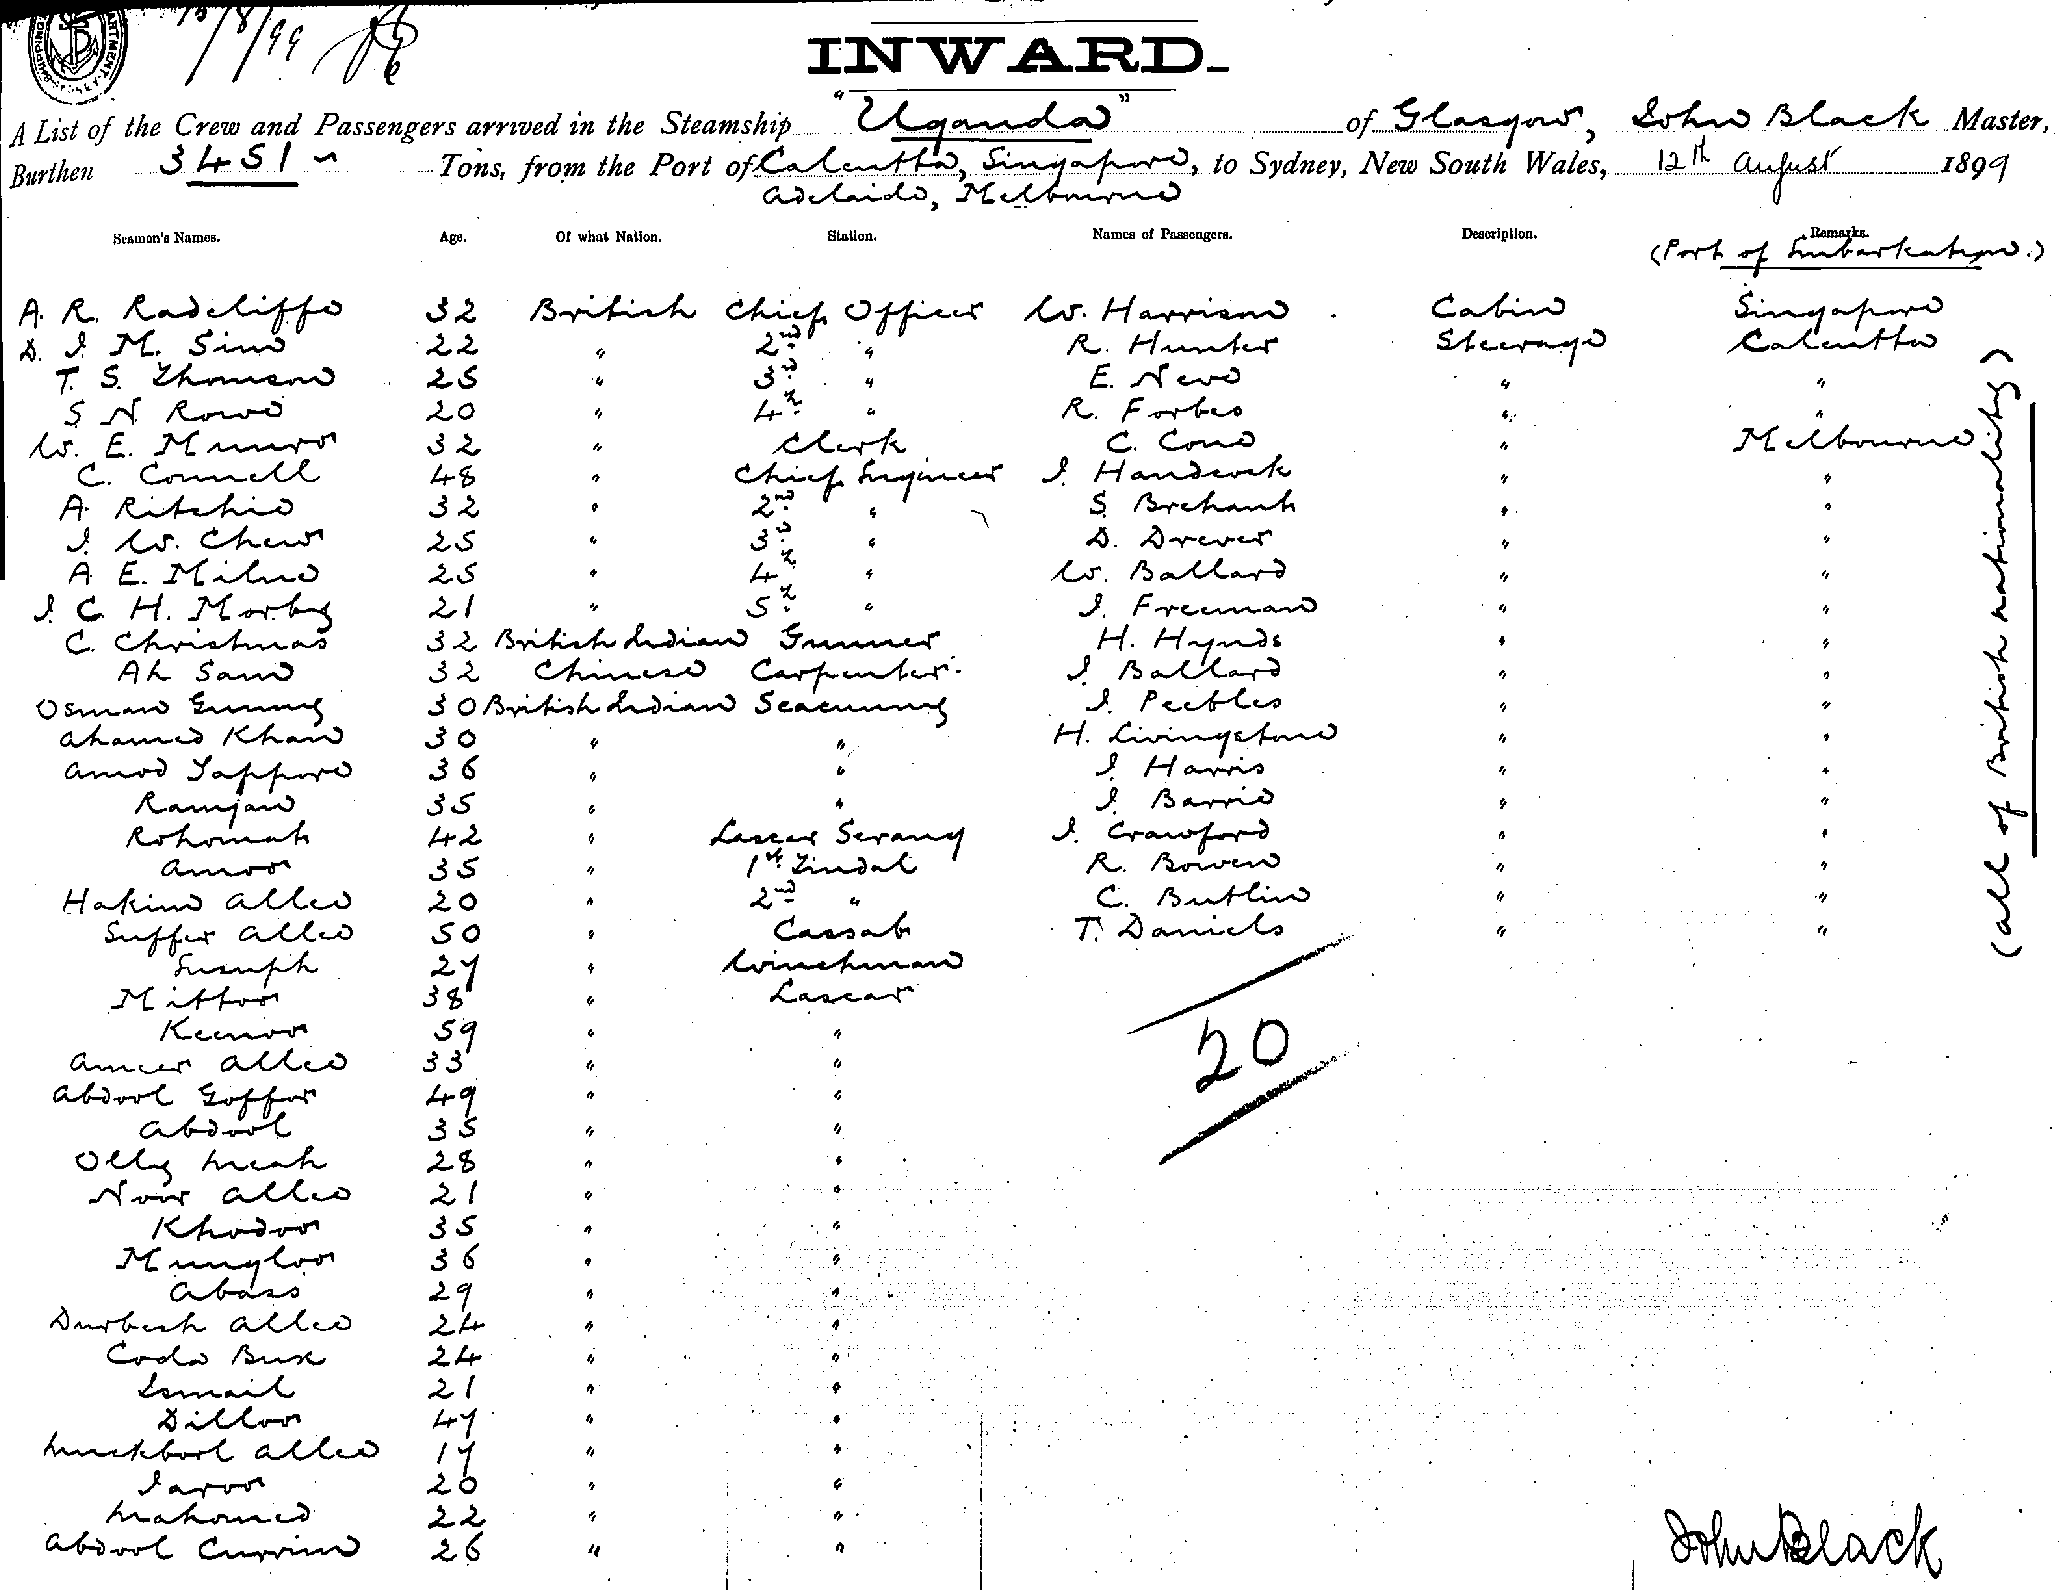 15/8/99
INWARD.
A List of the Crew and Passengers arrived in the Steamship "Uganda" of Glasgow, John Black Master,
Burthen 3451 Tons, from the Port of Calcutta, Singapore, to Sydney, New South Wales, 12th August 1899
Adelaide, Melbourne
Seamen's Names. Age. Of what Nation. Station. Names of Passengers. Description. Remarks.
(Port of Embarkation.)
A. R. Radcliffe 32 British Chief Officer W. Harrison Cabin Singapore
D. J. M. Sim 22 " 2nd " R. Hunter Steerage Calcutta
T. S. Thomson 25 " 3rd " E. Neve " "
S. N. Rowe 20 " 4th " R. Forbes " "
W. E. Munro 32 " Clerk C. Cone " Melbourne
C. Connell 48 " Chief Engineer J. Handcock " "
A. Ritchie 32 " 2nd " S. Brehaut " "
J. W. Chew 25 " 3rd " D. Drever " "
A. E. Milne 25 " 4th " W. Ballard " "
J. C. H. Morby 21 " 5th " J. Freeman " "
C. Christmas 32 British Indian Gunner H. Hynds " "
Ah Sam 32 Chinese Carpenter J. Ballard " "
Osman Gunny 30 British Indian Seacunny J. Peebles " "
Ahamed Khan 30 " " H. Livingstone " "
Amod Tappore 36 " " J. Harris " "
Ramjan 35 " " J. Barrie " "
Rohomah 42 " Lascar Serang J. Crawford " "
Amoor 35 " 1st Tindal R. Bowen " "
Hakim Allee 20 " 2nd " C. Butlin " "
Suffer Allee 50 " Cassab T. Daniels " "
Eusuph 27 " Winchman
Mittoo 38 " Lascar
Keenoo 59 " "
Ameer Allee 33 " "
Abdool Goffor 49 " "
Abdool 35 " "
Olly Meah 28 " "
Noor Allee 21 " "
Khodoo 35 " "
Mungloo 36 " "
Abass 29 " "
Durbesh Allee 24 " "
Coda Bux 24 " "
Ismail 21 " "
Dilloo 47 " "
Muckbool Allee 17 " "
Jaroo 20 " "
Mahomed 22 " "
Abdool Currim 26 " "
20
(all of British nationality)
John Black